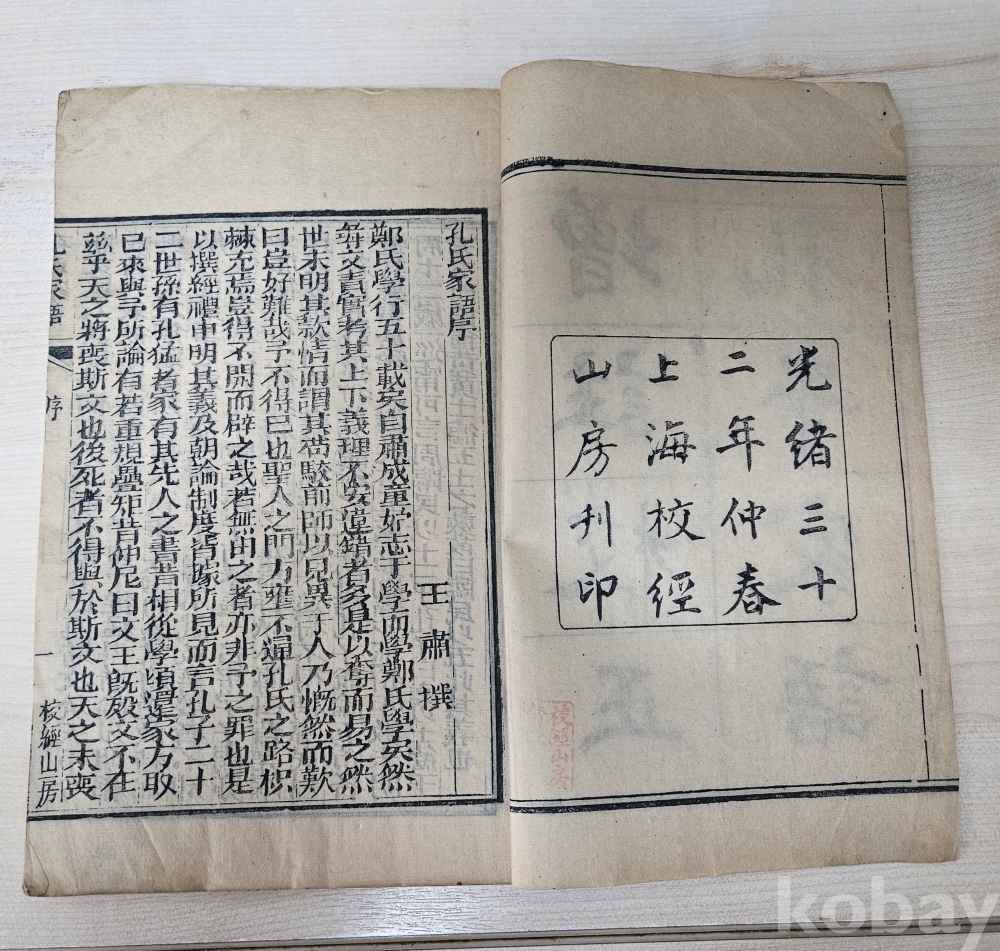 光緒三十
二年仲春
上海校經
山房刊印
孔氏家語序
王肅撰
鄭氏學行五十載矣自肅成童始志于學而學鄭氏學矣然
尋文責實考其上下義理不安違錯者多是以奪而易之然
世未明其款情而謂其苟駮前師以見異于人乃慨然而歎
曰豈好難哉予不得已也聖人之門方壅不通孔氏之路枳
棘充焉豈得不開而辟之哉若無由之者亦非予之罪也是
以撰經禮申明其義及朝論制度皆據所見而言孔子二十
二世孫有孔猛者家有其先人之書昔相從學頃還家方取
已來與予所論有若重規疊矩昔仲尼曰文王旣歿文不在
茲乎天之將喪斯文也後死者不得與於斯文也天之未喪
孔氏家語
序
一
校經山房
校經山房
kobay